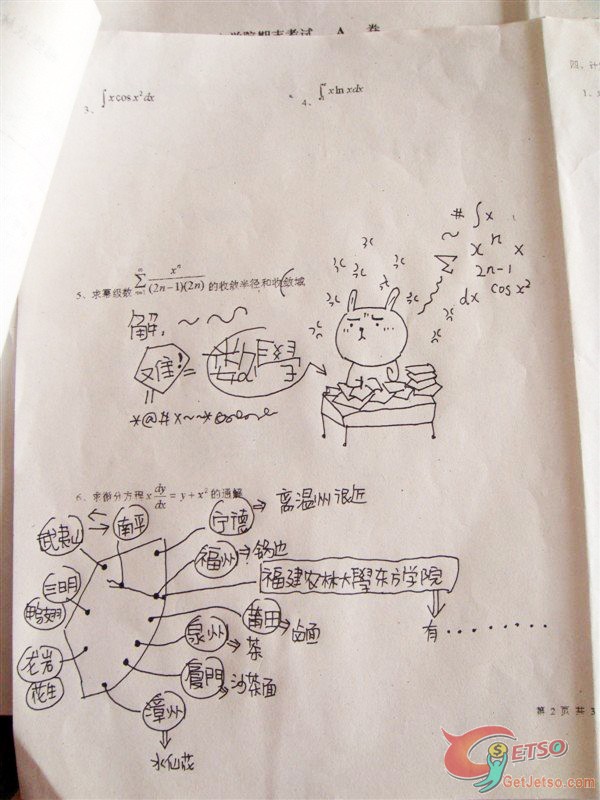 学院期末考试 A 卷
四、计
1、
3、∫x cos x² dx
4、∫ x ln x dx
5、求幂级数 ∑ xⁿ/((2n-1)(2n)) 的收敛半径和收敛域
解:~ ~ ~
又难! =
*@#x~~*
# ∫x
~ xⁿ x
∑ 2n-1
dx cos x²
6、求微分方程 x dy/dx = y + x² 的通解
武夷山
南平
宁德 ⇒ 离温州很近
福州 → 锅边
三明
鸭翅
福建农林大學东方学院
有........
莆田 卤面
泉州 茶
龙岩
花生
厦門 沙茶面
漳州
水仙花
第 2 页 共 3
GETSO
GetJetso.com